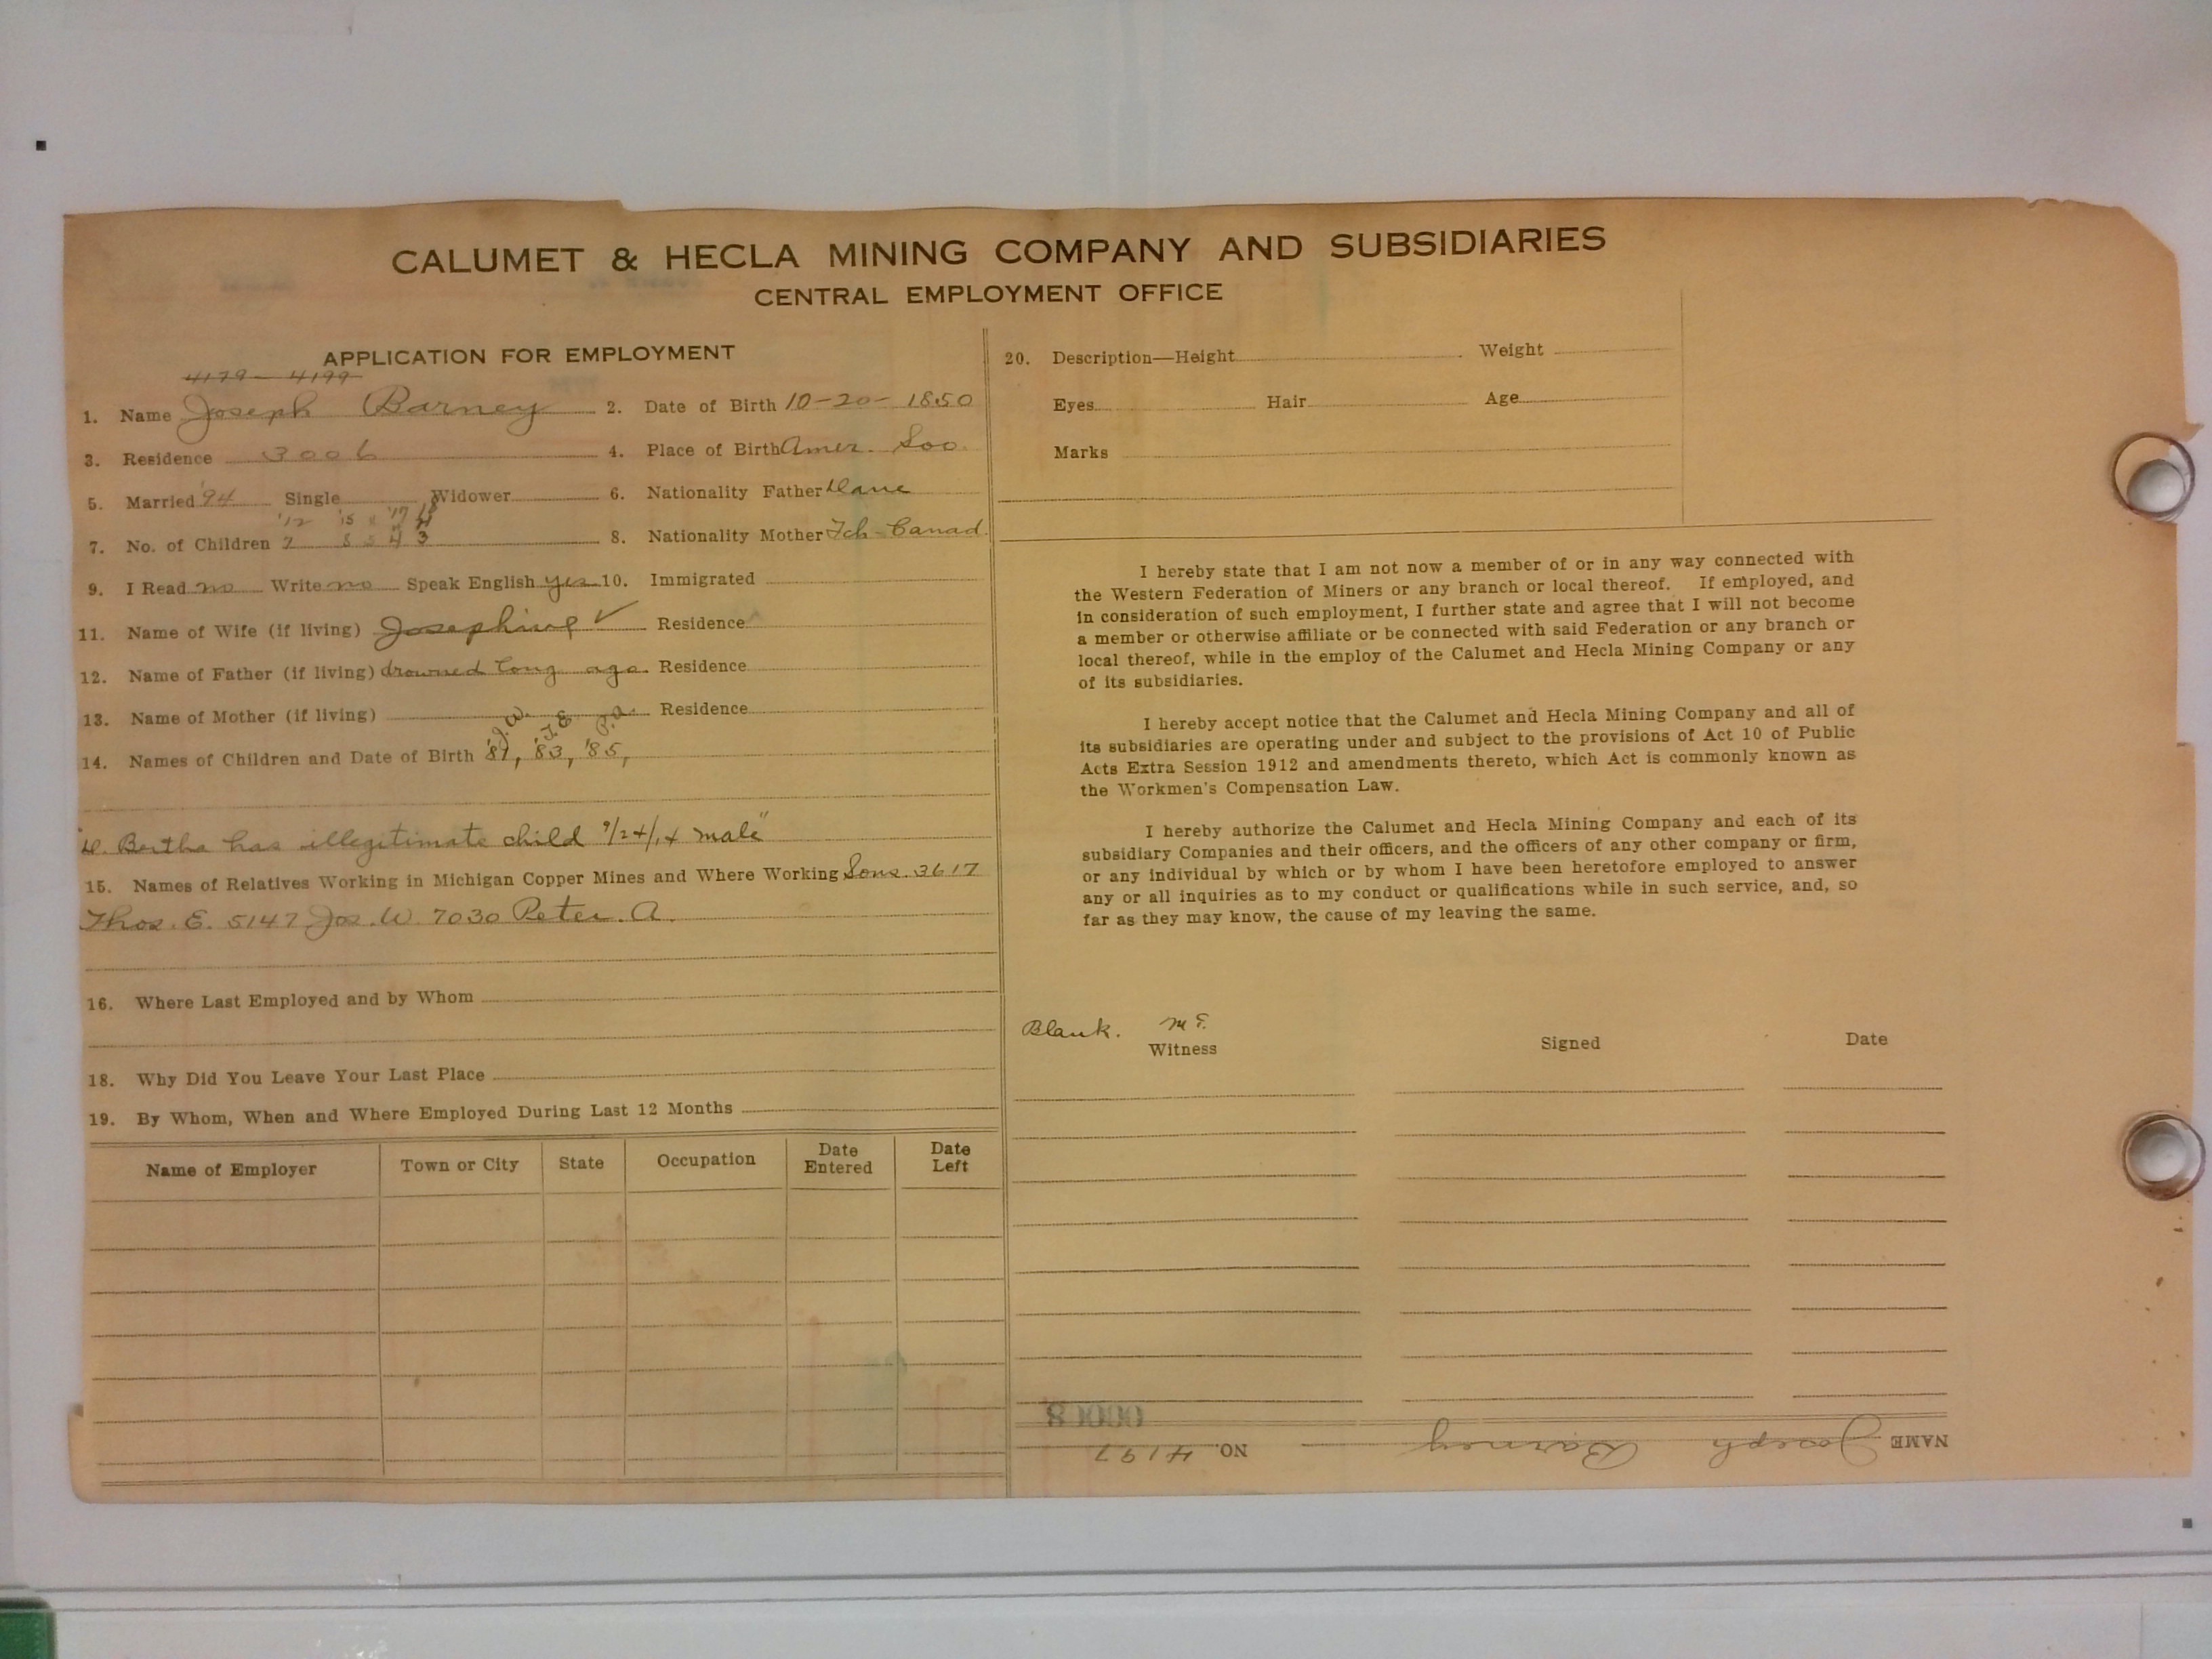 CALUMET & HECLA MINING COMPANY AND SUBSIDIARIES
CENTRAL EMPLOYMENT OFFICE
APPLICATION FOR EMPLOYMENT
4179 - 4199
1. Name Joseph Barney 2. Date of Birth 10-20-1850
3. Residence 3006 4. Place of Birth Amer. Soo.
5. Married '94 Single Widower 6. Nationality Father Dane
'12 '15 '17 18
7. No. of Children 7 8 5 4 3 8. Nationality Mother Fch-Canad.
9. I Read no Write no Speak English yes 10. Immigrated
11. Name of Wife (if living) Josephine ✓ Residence
12. Name of Father (if living) drowned long ago. Residence
13. Name of Mother (if living) Residence
J.W. T.E. P.A.
14. Names of Children and Date of Birth '81, '83, '85,
"D. Bertha has illegitimate child 9/24/14 male"
15. Names of Relatives Working in Michigan Copper Mines and Where Working Sons. 3617
Thos. E. 5147 Jos. W. 7030 Peter. A.
16. Where Last Employed and by Whom
18. Why Did You Leave Your Last Place
19. By Whom, When and Where Employed During Last 12 Months
Name of Employer Town or City State Occupation Date Entered Date Left
20. Description—Height Weight
Eyes Hair Age
Marks
I hereby state that I am not now a member of or in any way connected with
the Western Federation of Miners or any branch or local thereof. If employed, and
in consideration of such employment, I further state and agree that I will not become
a member or otherwise affiliate or be connected with said Federation or any branch or
local thereof, while in the employ of the Calumet and Hecla Mining Company or any
of its subsidiaries.
I hereby accept notice that the Calumet and Hecla Mining Company and all of
its subsidiaries are operating under and subject to the provisions of Act 10 of Public
Acts Extra Session 1912 and amendments thereto, which Act is commonly known as
the Workmen's Compensation Law.
I hereby authorize the Calumet and Hecla Mining Company and each of its
subsidiary Companies and their officers, and the officers of any other company or firm,
or any individual by which or by whom I have been heretofore employed to answer
any or all inquiries as to my conduct or qualifications while in such service, and, so
far as they may know, the cause of my leaving the same.
Blank.
Witness Signed Date
NAME Joseph Barney NO. 4197